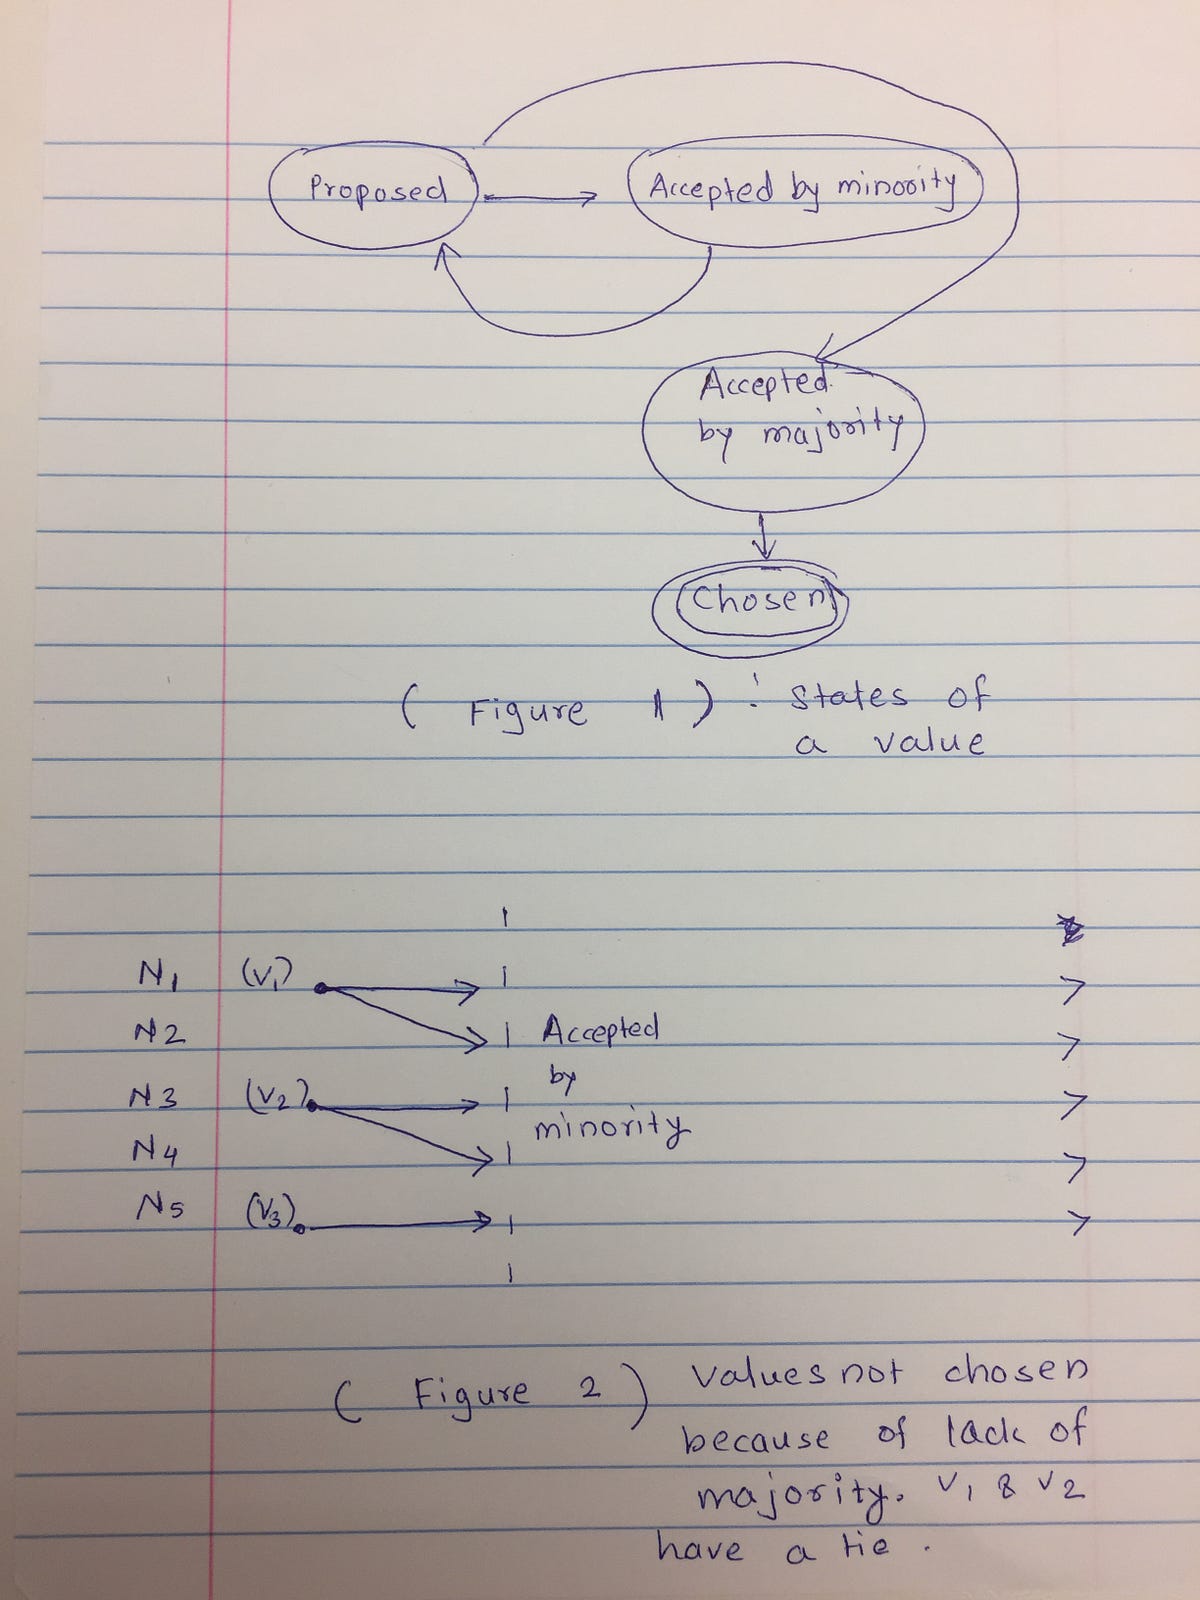 Proposed
Accepted by minority
Accepted
by majority
Chosen
( Figure 1 ) : States of
a value
N1 (V1)
N2 Accepted
by
N3 (V2)
minority
N4
N5 (V3)
( Figure 2 ) Values not chosen
because of lack of
majority. V1 & V2
have a tie.